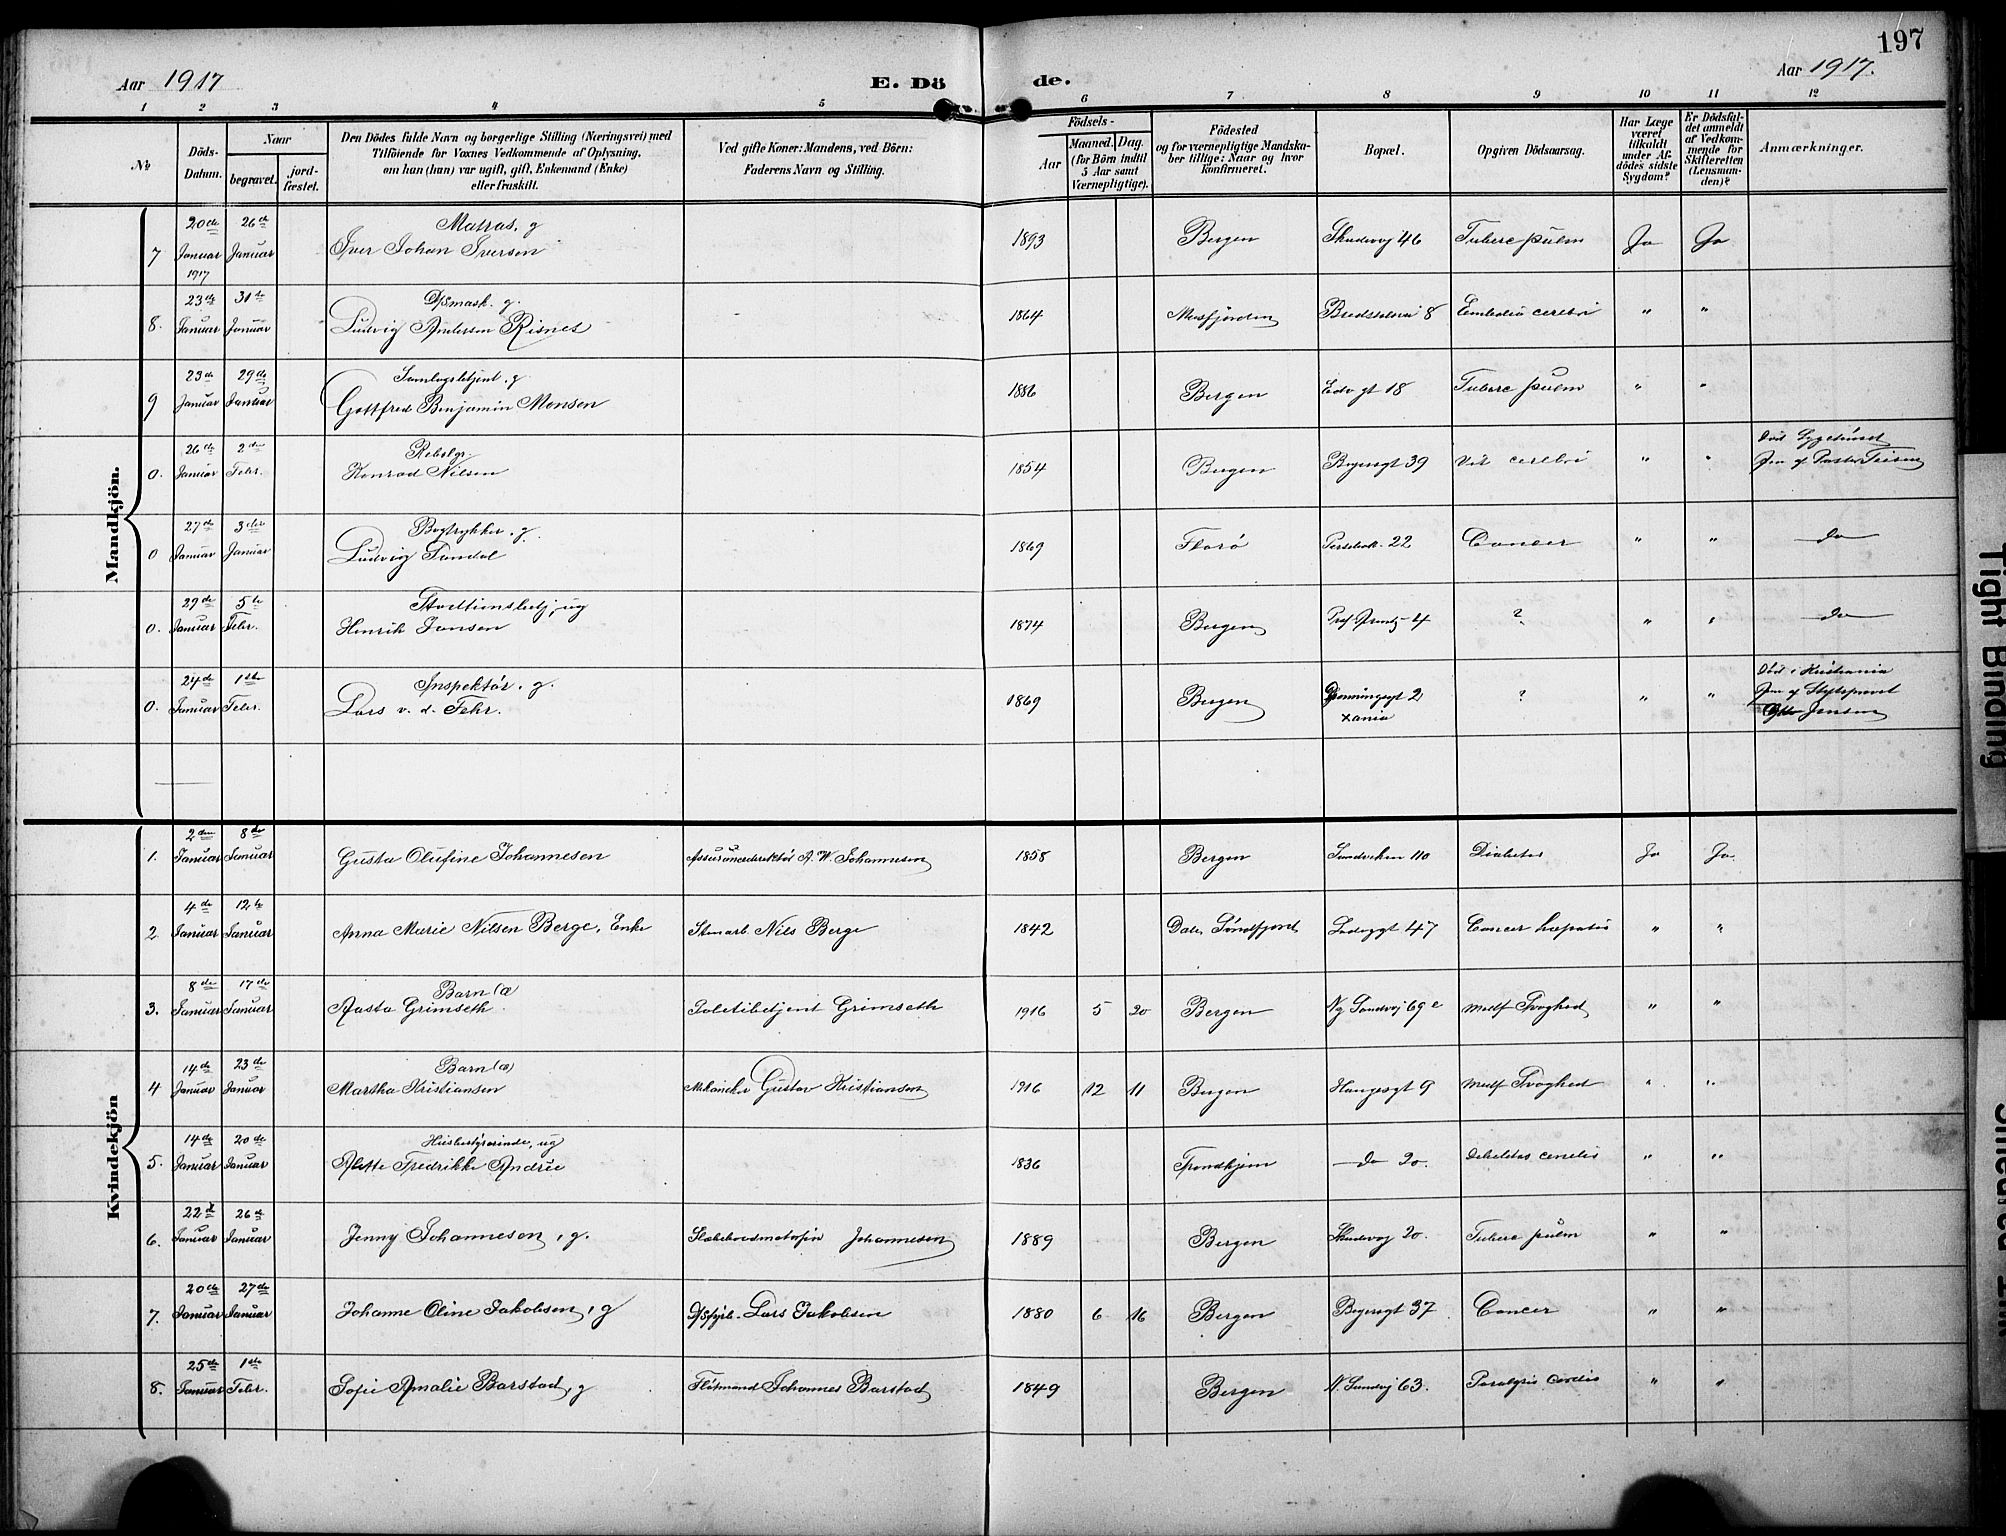 197
Aar 1917
E. Dö
de.
Aar 1917.
1 2 3 4 5 6 7 8 9 10 11 12
№
Döds-
Datum.
Naar
begravet.
jord-
fæstet.
Den Dödes fulde Navn og borgerlige Stilling (Næringsvei) med
Tilföiende for Voxnes Vedkommende af Oplysning,
om han (hun) var ugift, gift, Enkemand (Enke)
eller fraskilt.
Ved gifte Koner: Mandens, ved Börn:
Faderens Navn og Stilling.
Födsels-
Aar
Maaned. Dag.
(for Börn indtil
5 Aar samt
Værnepligtige).
Födested
og for værnepligtige Mandska-
ber tillige: Naar og hvor
konfirmeret.
Bopæl.
Opgiven Dödsaarsag.
Har Læge
været
tilkaldt
under Af-
dödes sidste
Sygdom?
Er Dödsfal-
det anmeldt
af Vedkom-
mende for
Skifteretten
(Lensman-
den)?
Anmærkninger.
Mandkjön.
20de 26de Matros, g
7 Januar Januar Iver Johan Iversen 1893 Bergen Skudevj 46 Tuberc pulm Ja Ja
1917
23de 31te Dpsmask. g.
8. Januar Januar Ludvig Andersen Risnes 1864 Masfjorden 8 Emboliö cerebri " "
23de 29de g
9 Januar Januar Gottfred Benjamin Monsen 1886 Bergen gt 18 Tuberc pulm " "
26de 2den Rebslgr Död Sygehuset
0. Januar Febr. Konrad Nilsen 1854 Bergen 39 Vit cerebri " " Pastor
27de 3die Bogtrykker, g.
0 Januar Januar Ludvig 1869 Florö 22 Cancer " " do
29de 5te ug
0. Januar Febr. Henrik Jansen 1874 Bergen Prof 4 ? " " do
24de 1ste Inspektör, g. Död i Kristiania
0. Januar Febr. Lars v. d. Fehr. 1869 Bergen 2 ? " "
Xania Jensen
Kvindekjön
2den 8de
1. Januar Januar Gusta Olufine Johannesen A. W. Johannesen 1858 Bergen Sandviken 110 Diabetes Ja Ja
4de 12te
2. Januar Januar Anna Marie Nilsen Berge, Enke Stenarb. Nils Berge 1842 Dale, Söndfjord 47 Cancer hepatis " "
8de 17de Barn (æ)
3. Januar Januar Aasta Grimseth Politibetjent Grimseth 1916 5 20 Bergen Ny Sandvj 69e Medf Svaghed " "
14de 23de Barn (æ)
4 Januar Januar Martha Kristiansen Mekaniker Gustav Kristiansen 1916 12 11 Bergen Haugesgt 9 Medf Svaghed " "
14de 20de Husbestyrerinde, ug
5. Januar Januar Alette Fredrikke Andrée 1836 Trondhjem do 20. "
22d 26de
6. Januar Januar Jenny Johannesen, g. Johannesen 1889 Bergen Skudevg 20. Tuberc pulm " "
20de 27de
7. Januar Januar Johanne Oline Jakobsen, g Lars Jakobsen 1880 6 16 Bergen 37 Cancer " "
25de 1ste
8. Januar Febr. Sofie Amalie Barstad, g Johannes Barstad 1849 Bergen N. Sandvj 63. Paralysis cordis " "
Tight Binding